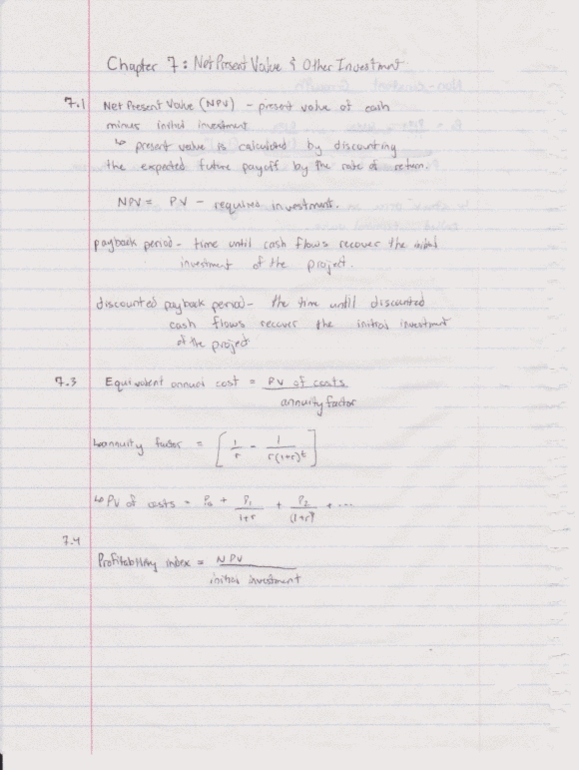 Chapter 7: Net Present Value & Other Investment
7.1 Net Present Value (NPV) - present value of cash
minus initial investment
↳ present value is calculated by discounting
the expected future payoff by the rate of return.
NPV = PV - required investment.
payback period - time until cash flows recover the initial
investment of the project.
discounted payback period - the time until discounted
cash flows recover the initial investment
of the project
7.3 Equivalent annual cost = PV of costs / annuity factor
↳ annuity factor = [1/r - 1/r(1+r)^t]
↳ PV of costs = P₀ + P₁/1+r + P₂/(1+r)² + ...
7.4
Profitability index = NPV / initial investment